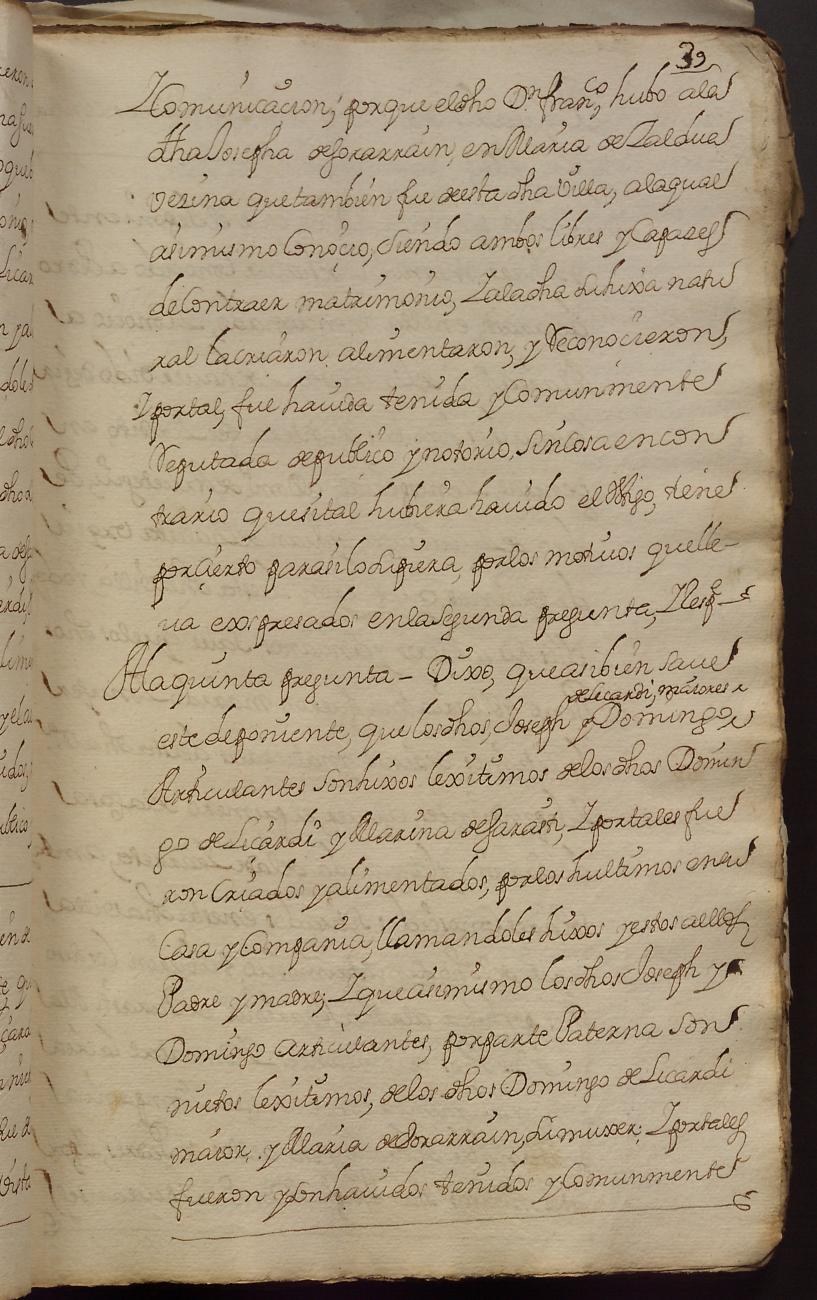 39
Y Comunicacion, porque el dho Dn Franco, hubo a la
dha Josepha de Sorarrain, en Maria de Zaldua
vezina que tambien fue de esta dha Villa, a la qual
asimismo Conocio, siendo ambos libres y Capazes
de Contraer matrimonio, Y a la dha su hixa natu
ral la criaron alimentaron, y Reconocieron,
Y por tal, fue hauida tenida y Comunmente
Reputada de publico y notorio, sin Cosa en con
trario que si tal hubiera hauido el tgo, tiene
por cierto para si lo supiera, por los motiuos que lle-
ua expresados en la Segunda pregunta, Y Respe
A la quinta pregunta - Dixo, que asi bien saue
de Licardi, maiores
este deponiente, que los dhos, Joseph y Domingo,
Articulantes son hixos lexitimos de los dhos Domin
go de Licardi y Marina de Sarasti, Y por tales fue
ron Criados y alimentados, por los hultimos en su
Casa y Compania, llamandoles hixos y estos a ellos
Padre y madre; Y que asimismo los dhos Joseph y
Domingo articulantes, por parte Paterna son
nietos lexitimos, de los dhos Domingo de Licardi
maior, y Maria de Sorarrain, su muxer; Y por tales
fueron y son hauidos tenidos y Comunmente